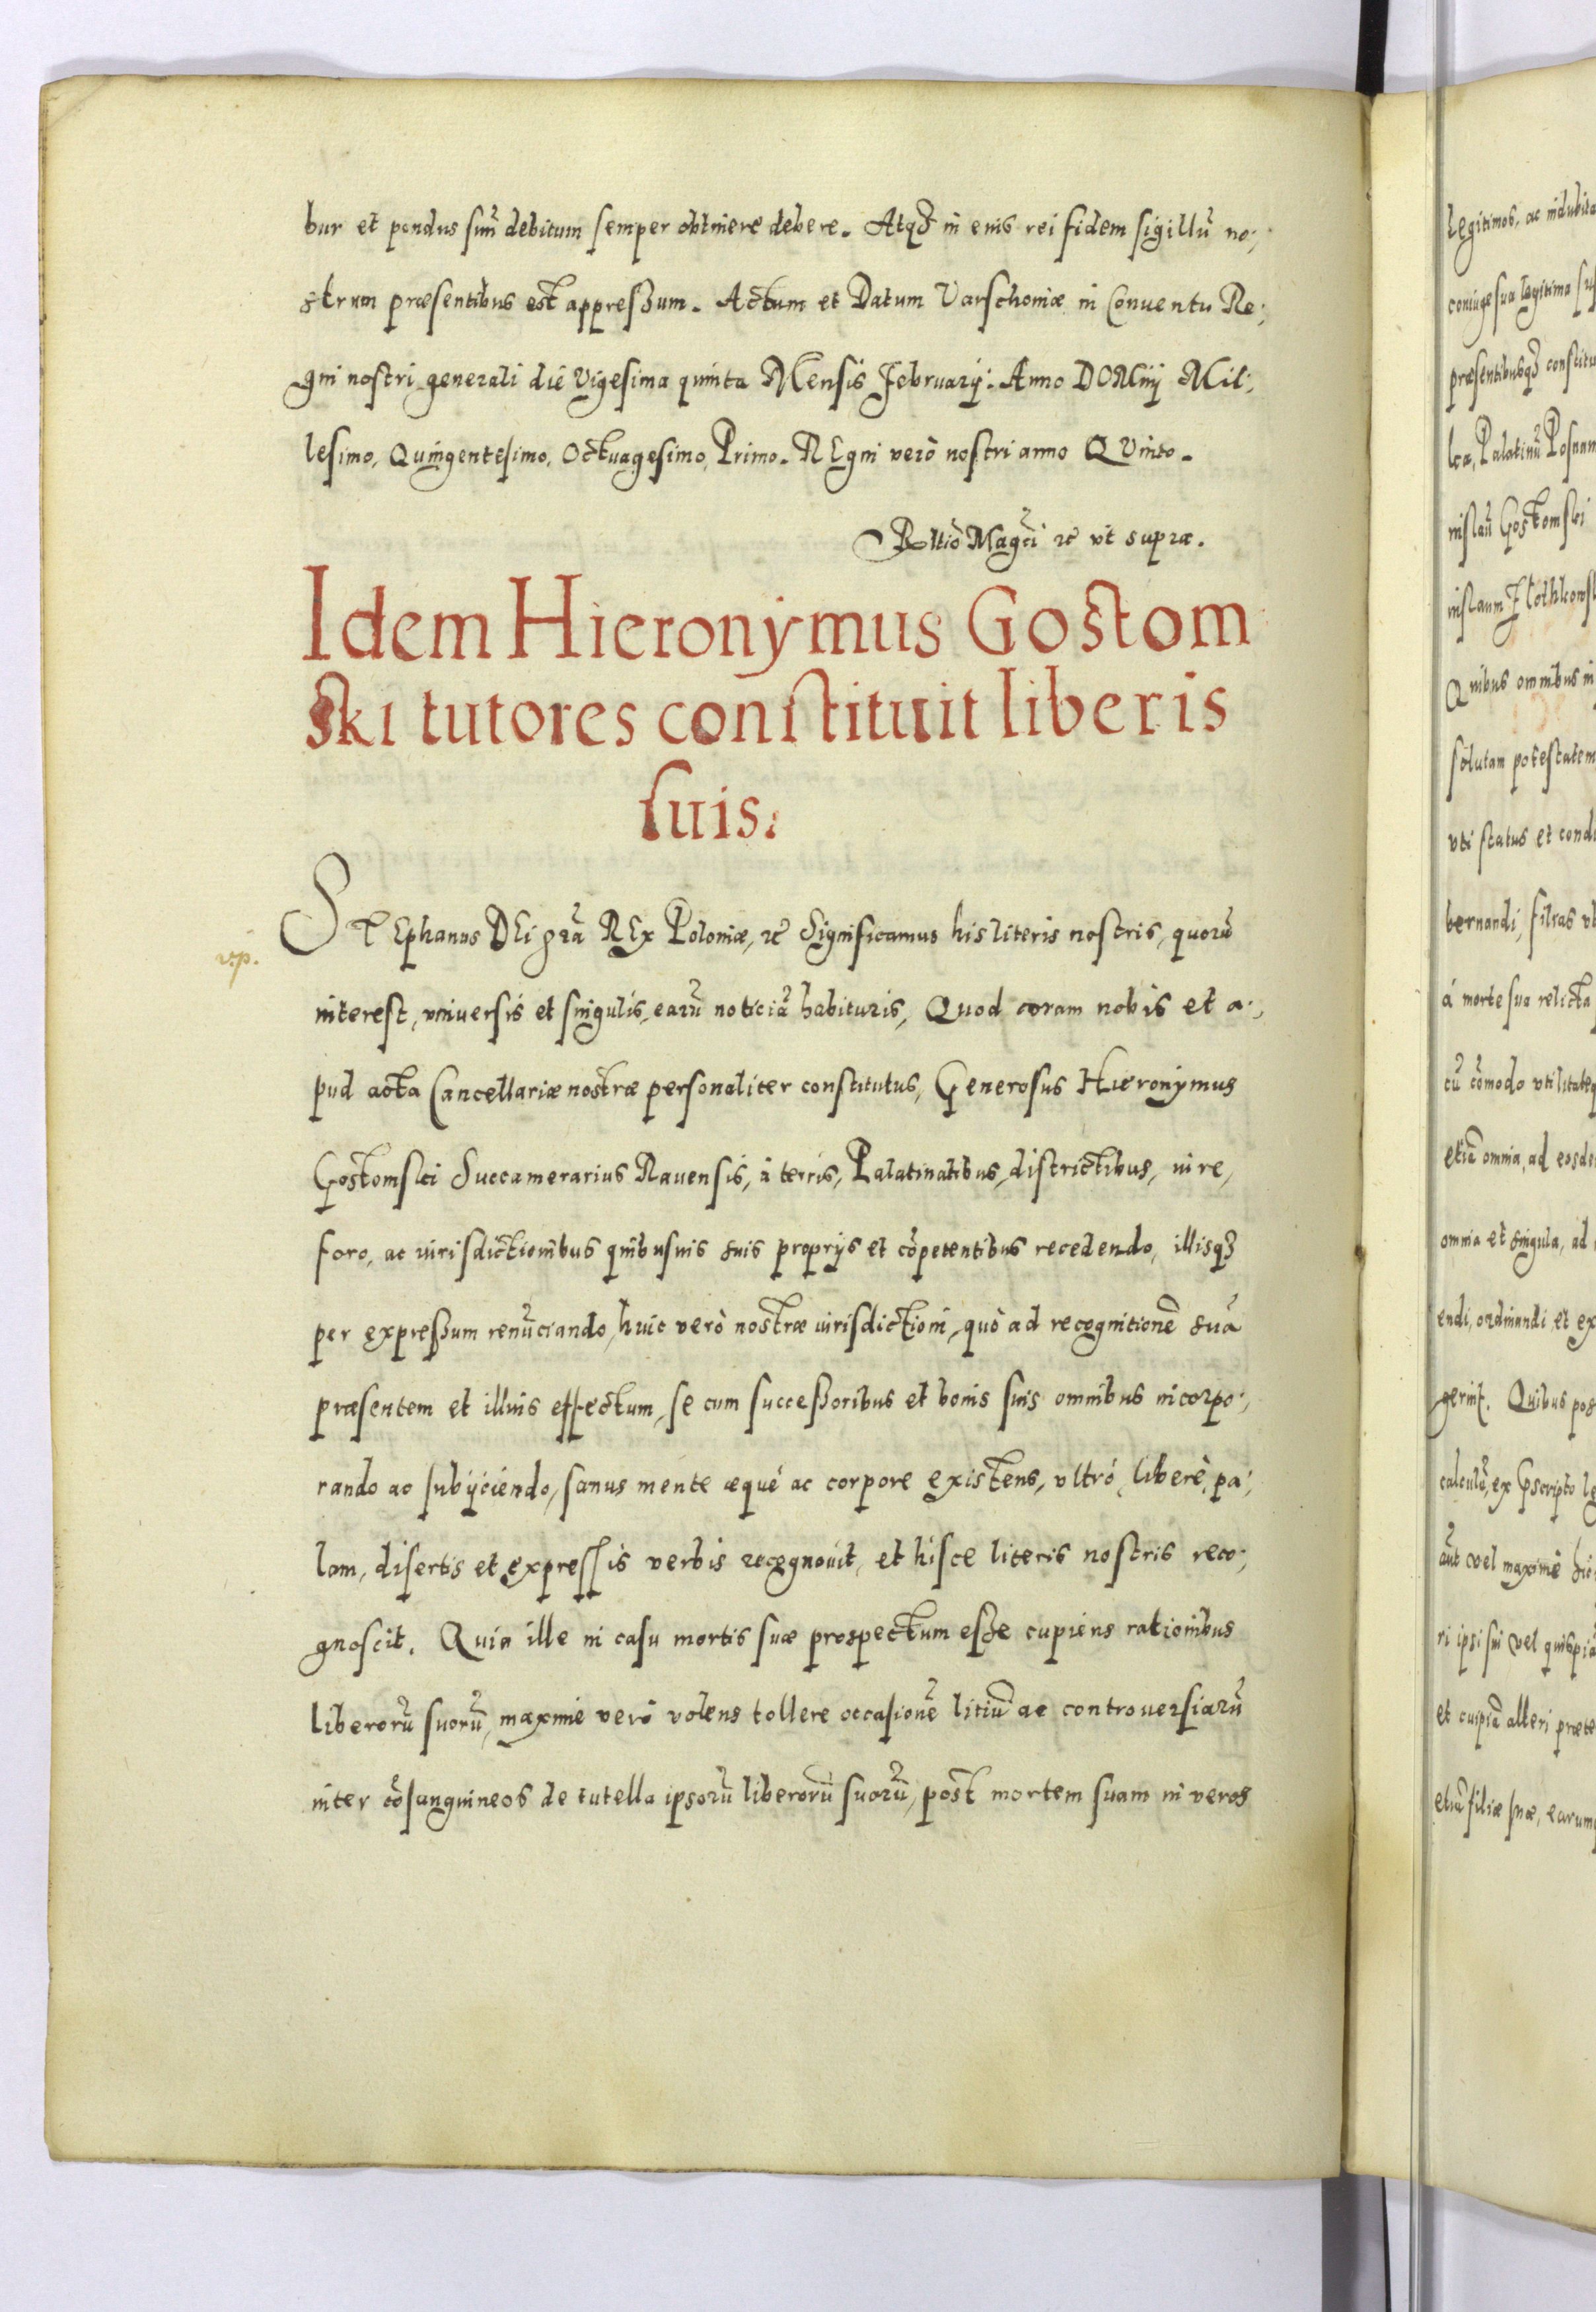 bur et pondus suũ debitum semper obtinere debere. Atqꝫ in eius rei fidem sigillũ no:
strum præsentibus est appressum. Actum et Datum Varschoniæ in Conuentu Re:
gni nostri generali die Vigesima quinta Mensis Februarij. Anno DOMinj Mil:
lesimo, Quingentesimo, Octuagesimo, Primo. REgni verò nostri anno QVinto.
Rltiõ Magci ꝛc̃ vt supra.
Idem Hieronymus Gostom
ski tutores constituit liberis
suis.
STEphanus DEi grã REx Poloniæ, ꝛc̃ Significamus his literis nostris, quorũ
interest, vniuersis et singulis, earũ noticiã habituris, Quod coram nobis et a:
pud acta Cancellariæ nostræ personaliter constitutus, Generosus Hieronymus
Gostomski Succamerarius Rauensis, à terris, Palatinatibus, districtibus, iure,
foro, ac iurisdictionibus quibusuis suis proprijs et cõpetentibus recedendo, illisqꝫ
per expressum renũciando, huic verò nostræ iurisdictioni, quò ad recognitionẽ suã
præsentem et illius effectum, se cum successoribus et bonis suis omnibus incorpo:
rando ac subijciendo, sanus mente æquè ac corpore existens, vltrò, liberè, pa:
lam, disertis et expressis verbis recognouit, et hisce literis nostris reco:
gnoscit. Quia ille in casu mortis suæ prospectum esse cupiens rationibus
liberorũ suorũ, maximè verò volens tollere occasionẽ litiũ ac controuersiarũ
inter cõsanguineos de tutella ipsorũ liberorũ suorũ, post mortem suam in veros
v.p.
Legitimos, ac indubita
coniuge sua legitima
præsentibusqꝫ constitu
lca, Palatinũ Posnan
nislaũ Gostomski
Quibus omnibus in
solutam potestatem
vti status et condi
bernandi, filias
à morte sua relicta
cũ cõmodo vtilitateq
etiã omnia, ad eosde
omnia et singula, ad
endi, ordinandi, et ex
gerint. Quibus pos
aut vel maximè
ri ipsi sui vel quispiã
et cuipiã alteri præte
etiã filiæ suæ, earum